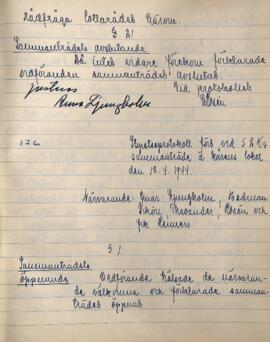 rådfråga lottarådets härom.
§ 21
Sammanträdets avslutande
Då intet ordare förekom förklarade
ordföranden sammanträdet avslutat
Justeras Vid protokollet
Anna Ljungholm
176
Styrelseprotokoll förs vid
sammanträde å kårens lokal
den 18.4.1944.
Närvarande: Ljungholm,
och
§ 1
Sammanträdets
öppnande Ordförande hälsade de närvaran-
de välkomna och förklarade samman-
trädet öppnat